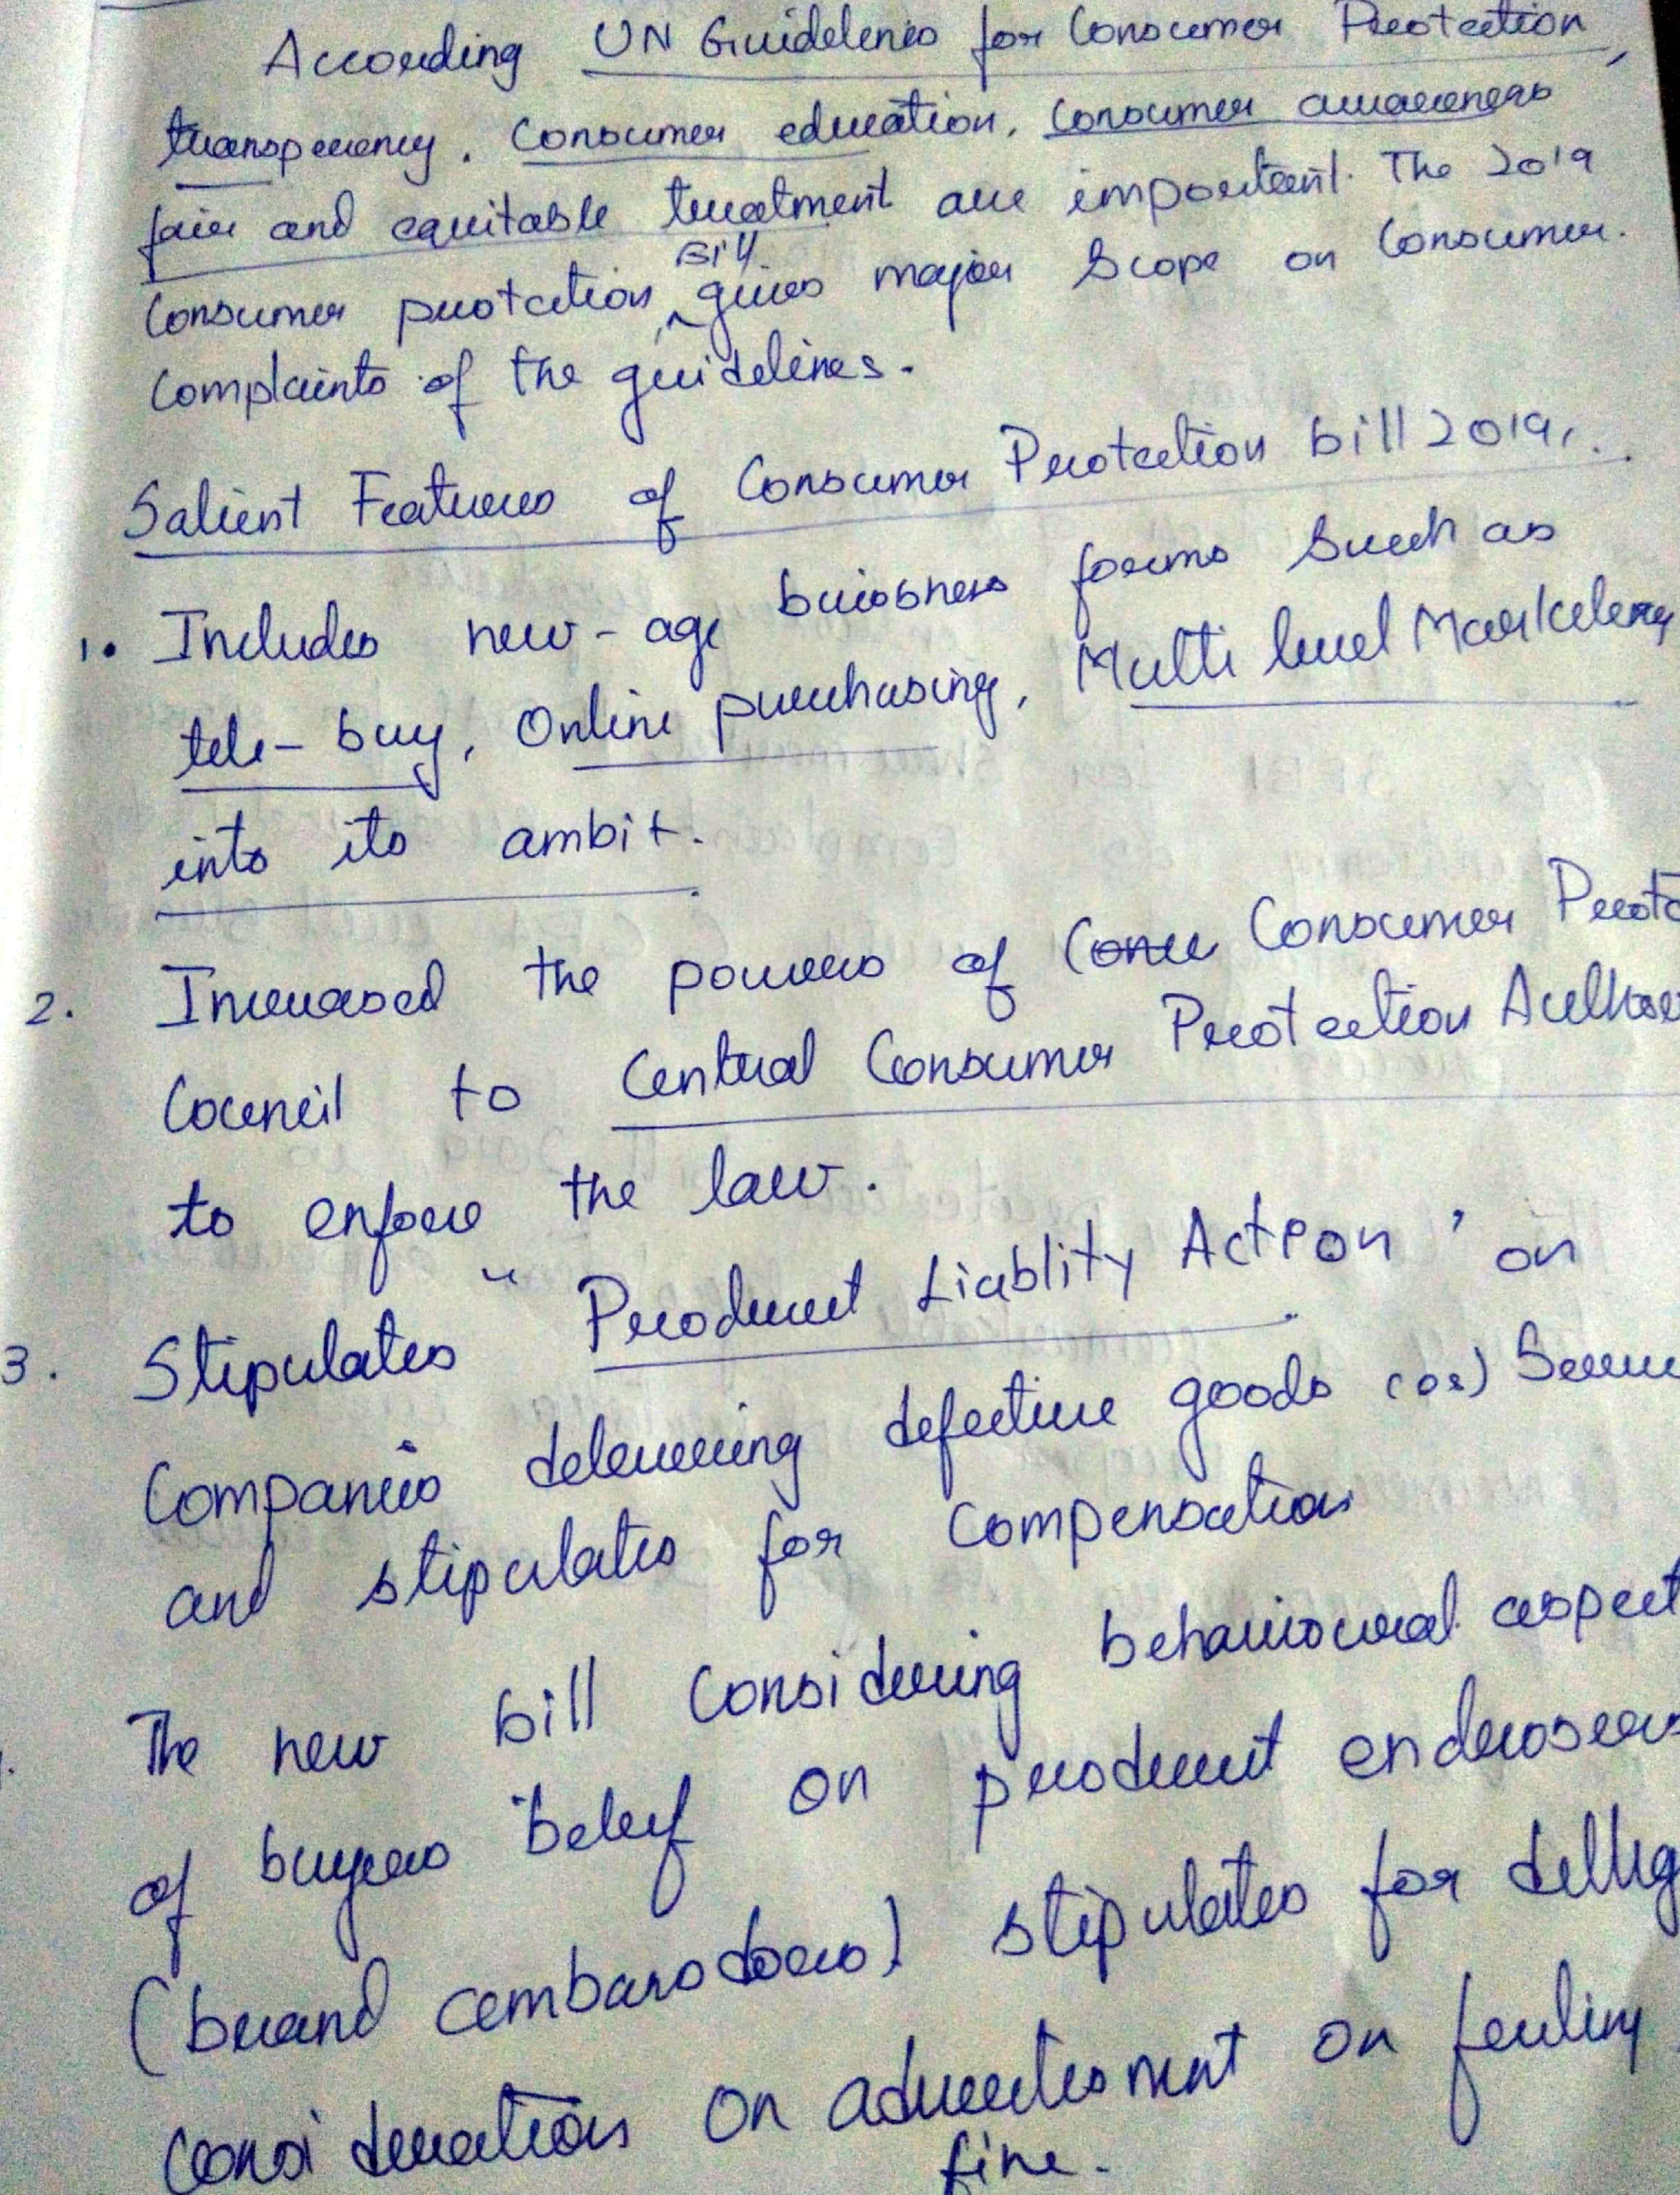 According UN Guidelines for Consumer Protection,
transperency. Consumer education, Consumer awareness
fair and equitable treatment are important. The 2019
Bill
Consumer protcetion gives major Scope on Consumer.
Complaints of the guidelines.
Salient Features of Consumer Protection bill 2019.
1. Includes new-age buisness forms such as
tele-buy, Online purchasing, Multi level Marketing
into its ambit.
2. Increased the powers of Consumer
Council to Central Consumer Protection
to enforce the law.
3. Stipulates "Product Liablity Action" on
Companies delivering defective goods (or)
and stipulates for Compensation
The new bill Considering behavioural aspect
of buyers belief on product
(brand ambassodors) stipulates for
consideration on advertisment on failing
fine.